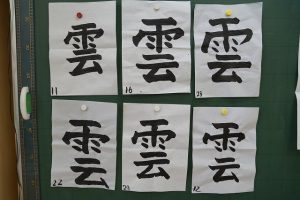 雲
11
雲
16
雲
25
雲
22
雲
雲
12